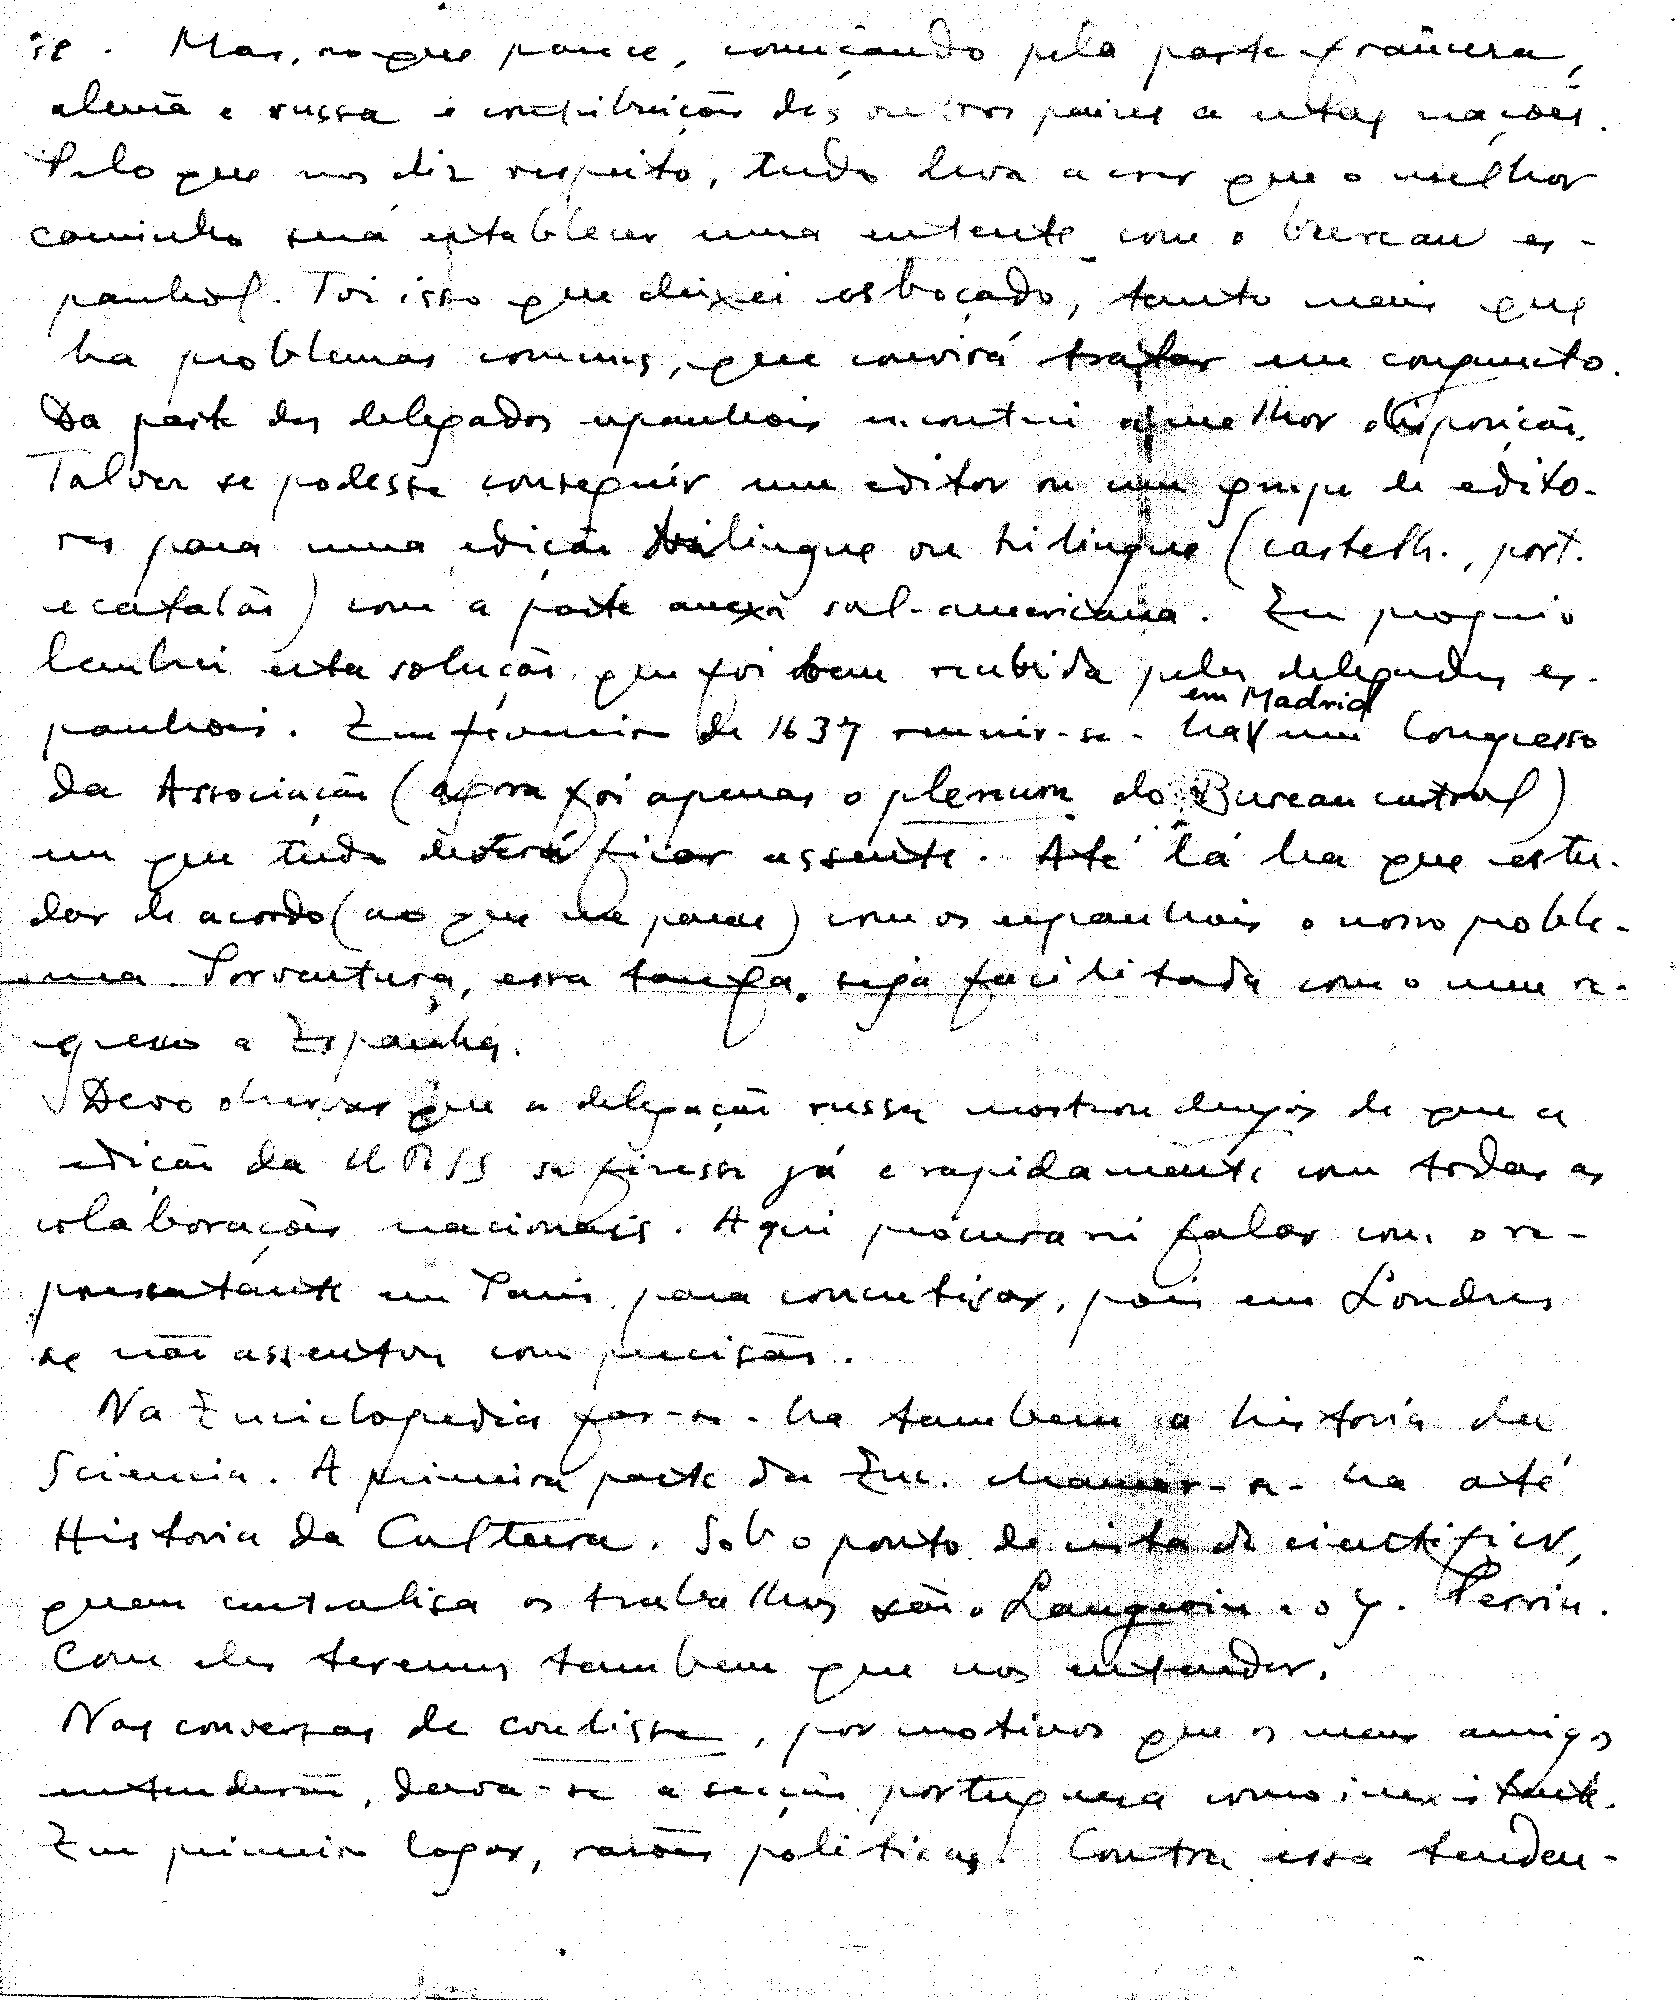 se. Mas, ao que parece, começando pela parte francesa,
alemã e russa e contribuição dos outros paises a estas nações.
Pelo que nos diz respeito, tudo leva a crer que o melhor
caminho será establecer uma entente com o bureau es-
panhol. Foi isso que deixei esboçado, tanto mais que
ha problemas comuns, que convirá tratar em conjunto.
Da parte dos delegados espanhois encontrei a melhor disposição.
Talvez se podesse conseguir um editor ou um grupo de edito-
res para uma edição bilingue ou trilingue (castelh., port.
e catalão) com a parte anexa sul-americana. Eu proprio
lembrei esta solução que foi bem recebida pelos delegados es-
panhois. Em fevereiro de 1637 reunir-se-ha em Madrid um Congresso
da Associação (agora foi apenas o plenum do Bureau central)
em que tudo deverá ficar assente. Até lá ha que estu-
dar de acordo (ao que me parece) com os espanhois o nosso proble-
ma. Porventura, essa tarefa, seja facilitada com o meu re-
gresso a Espanha.
Devo observar que a delegação russa mostrou desejos de que a
edição da URSS se fizesse já e rapidamente com todas as
colaborações nacionais. Aqui procurarei falar com o re-
presentante em Paris, para concretisar, pois em Londres
se não assentou com precisão.
Na Enciclopedia far-se-ha tambem a historia da
Sciencia. A primeira parte da Enc. chamar-se-ha até
Historia da Cultura. Sob o ponto de vista de cientifico,
quem centralisa os trabalhos são o Langevin e o J. Perrin.
Com eles teremos tambem que nos entender.
Nas conversas de coulisse, por motivos que os meus amigos
entenderão, dava-se a secção portuguesa como inexistente.
Em primeiro logar, razões politicas. Contra essa tenden-